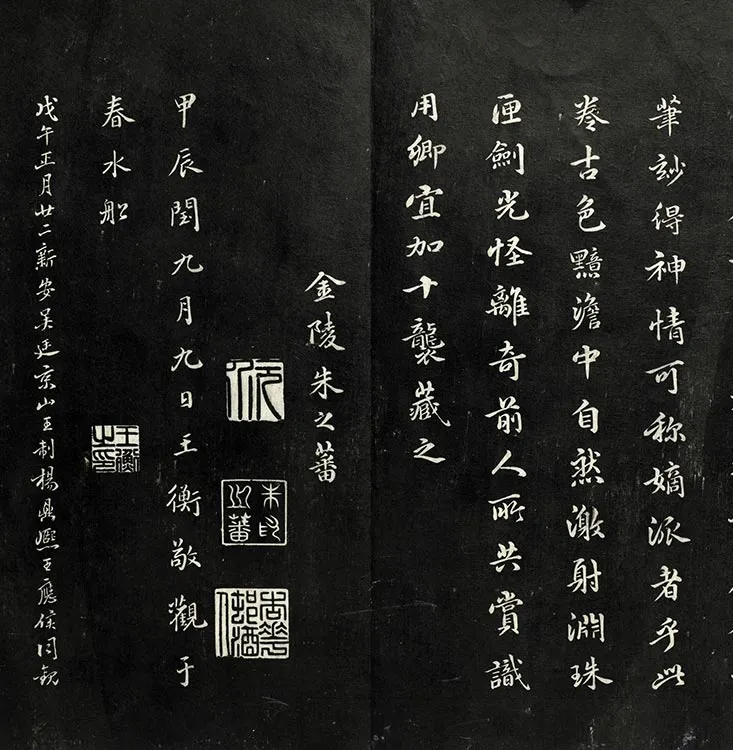 筆玅得神情可称嫡派者乎此
卷古色黯澹中自然激射淵珠
匣劍光怪離奇前人所共賞識
用卿宜加十襲藏之
金陵朱之蕃
甲辰閏九月九日王衡敬觀于
春水船
王衡之印
戊午正月廿二新安吳廷京山王制楊鼎熙王應侯同觀